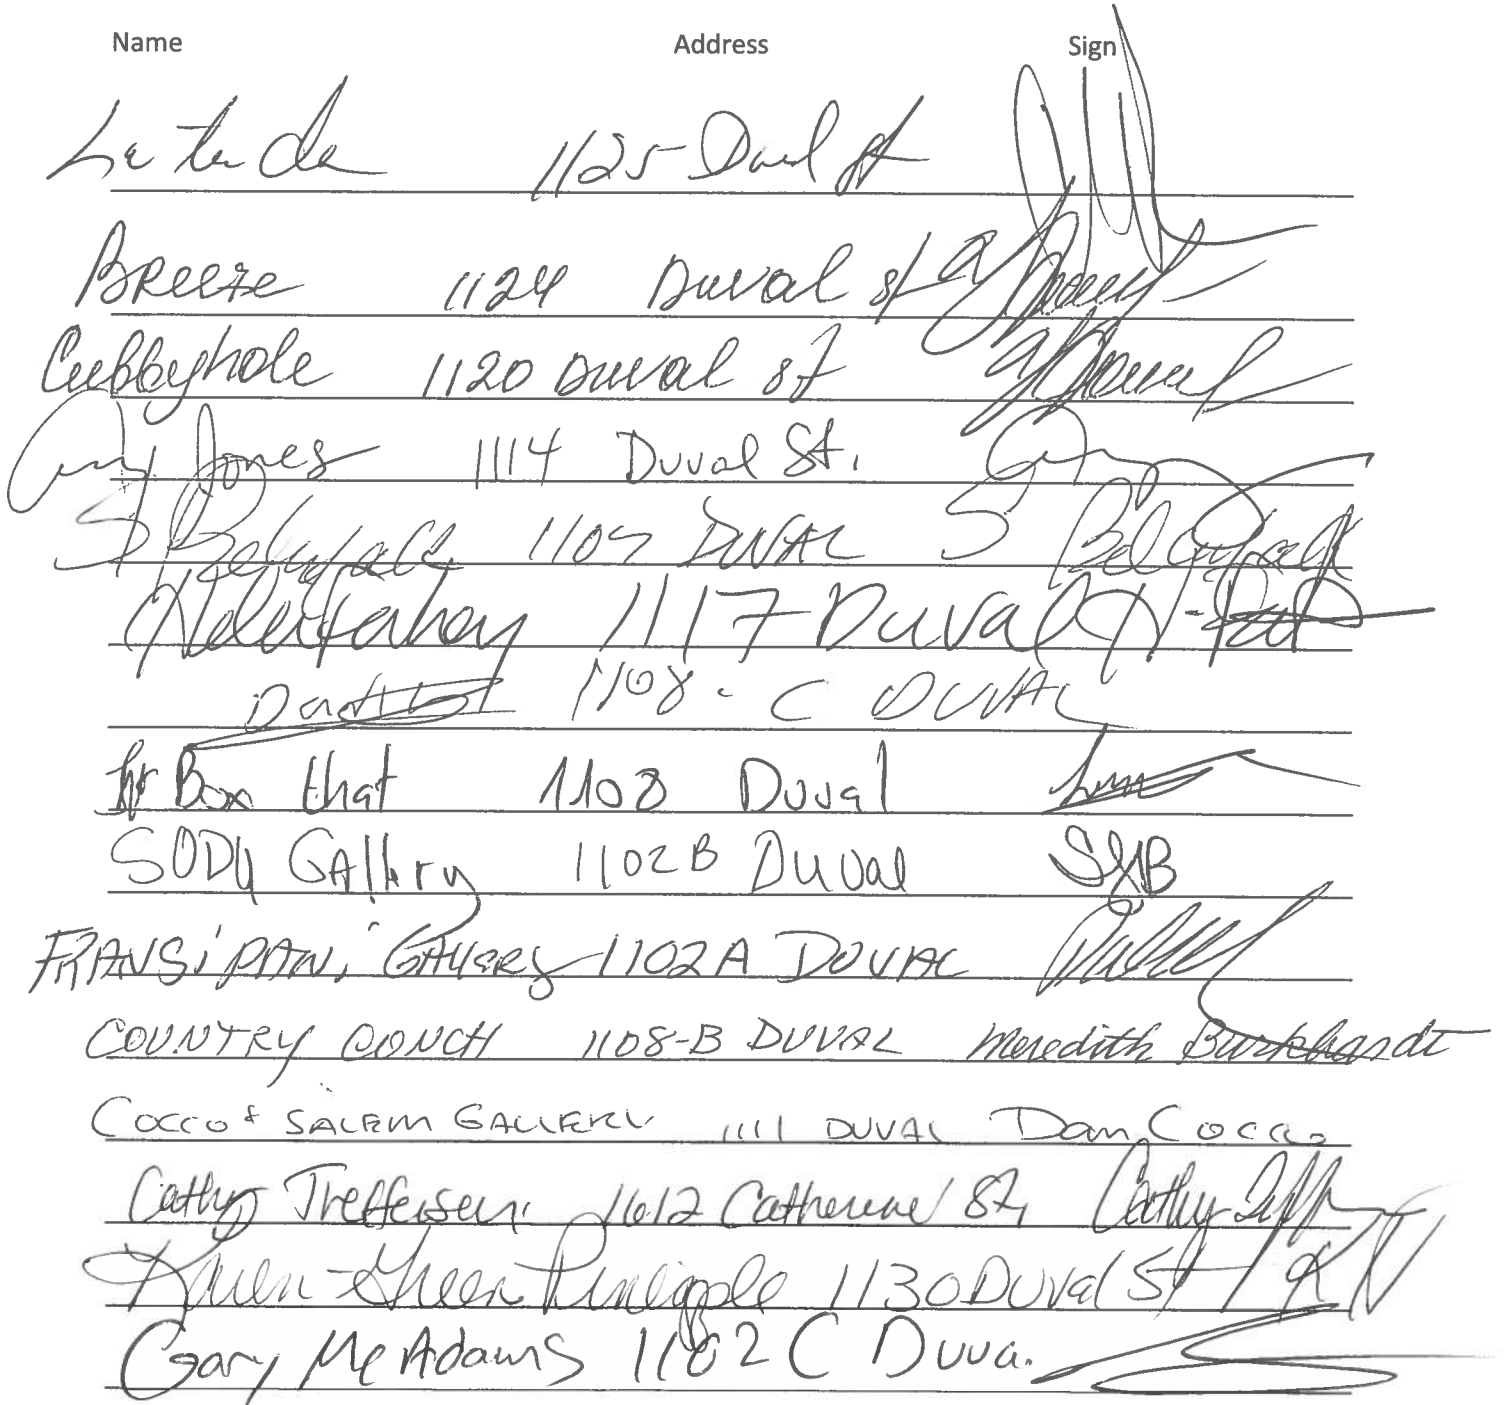 Name Address Sign
La te da 1125 Duval st
Breeze 1124 Duval st
Cubbyhole 1120 Duval st
Jones 1114 Duval St.
S 1107 DUVAL S
1117 Duval
1108-C DUVAL
Box that 1108 Duval
SODU Gallery 1102B Duval SXB
FRANGiPANi GALLERY 1102A DUVAL
COUNTRY CONCH 1108-B DUVAL Meredith Burkhardt
COCCO & SALEM GALLERY 1111 DUVAL Dan Cocco
Cathy 1612 Catherine St, Cathy
Karen-Green Pineapple 1130 Duval St KN
Gary McAdams 1102 C Duva.